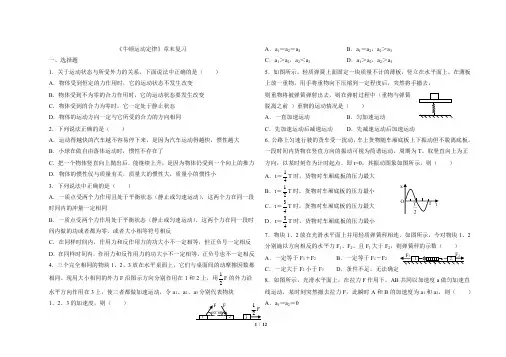 《牛顿运动定律》章末复习
一、选择题
1. 关于运动状态与所受外力的关系，下面说法中正确的是（ ）
A. 物体受到恒定的力作用时，它的运动状态不发生改变
B. 物体受到不为零的合力作用时，它的运动状态要发生改变
C. 物体受到的合力为零时，它一定处于静止状态
D. 物体的运动方向一定与它所受的合力的方向相同
2. 下列说法正确的是（ ）
A. 运动得越快的汽车越不容易停下来，是因为汽车运动得越快，惯性越大
B. 小球在做自由落体运动时，惯性不存在了
C. 把一个物体竖直向上抛出后，能继续上升，是因为物体仍受到一个向上的推力
D. 物体的惯性仅与质量有关，质量大的惯性大，质量小的惯性小
3. 下列说法中正确的是（ ）
A. 一质点受两个力作用且处于平衡状态（静止或匀速运动），这两个力在同一段
时间内的冲量一定相同
B. 一质点受两个力作用处于平衡状态（静止或匀速运动），这两个力在同一段时
间内做的功或者都为零，或者大小相等符号相反
C. 在同样时间内，作用力和反作用力的功大小不一定相等，但正负号一定相反
D. 在同样的时间内，作用力和反作用力的功大小不一定相等，正负号也不一定相反
4. 三个完全相同的物块 1、2、3 放在水平桌面上，它们与桌面间的动摩擦因数都
相同。现用大小相同的外力 F 沿图示方向分别作用在 1 和 2 上，用 1/2 F 的外力沿
水平方向作用在 3 上，使三者都做加速运动，令 a₁、a₂、a₃ 分别代表物块
1、2、3 的加速度，则（ ）
A. a₁=a₂=a₃ B. a₁=a₂，a₂>a₃
C. a₁>a₂，a₂<a₃ D. a₁>a₂，a₂>a₃
5. 如图所示，轻质弹簧上面固定一块质量不计的薄板，竖立在水平面上。在薄板
上放一重物，用手将重物向下压缩到一定程度后，突然将手撤去，
则重物将被弹簧弹射出去，则在弹射过程中（重物与弹簧
脱离之前）重物的运动情况是（ ）
A. 一直加速运动 B. 匀加速运动
C. 先加速运动后减速运动 D. 先减速运动后加速运动
6. 公路上匀速行驶的货车受一扰动，车上货物随车厢底板上下振动但不脱离底板。
一段时间内货物在竖直方向的振动可视为简谐运动，周期为 T。取竖直向上为正
方向，以某时刻作为计时起点，即 t=0，其振动图象如图所示，则（ ）
A. t=1/4 T 时，货物对车厢底板的压力最大
B. t=1/2 T 时，货物对车厢底板的压力最小
C. t=3/4 T 时，货物对车厢底板的压力最大
D. t=3/4 T 时，货物对车厢底板的压力最小
7. 物块 1、2 放在光滑水平面上并用轻质弹簧秤相连，如图所示，今对物块 1、2
分别施以方向相反的水平力 F₁、F₂，且 F₁ 大于 F₂，则弹簧秤的示数（ ）
A. 一定等于 F₁+F₂ B. 一定等于 F₁-F₂
C. 一定大于 F₂ 小于 F₁ D. 条件不足，无法确定
8. 如图所示，光滑水平面上，在拉力 F 作用下，AB 共同以加速度 a 做匀加速直
线运动，某时刻突然撤去拉力 F，此瞬时 A 和 B 的加速度为 a₁ 和 a₂，则（ ）
A. a₁=a₂=0
1 / 11